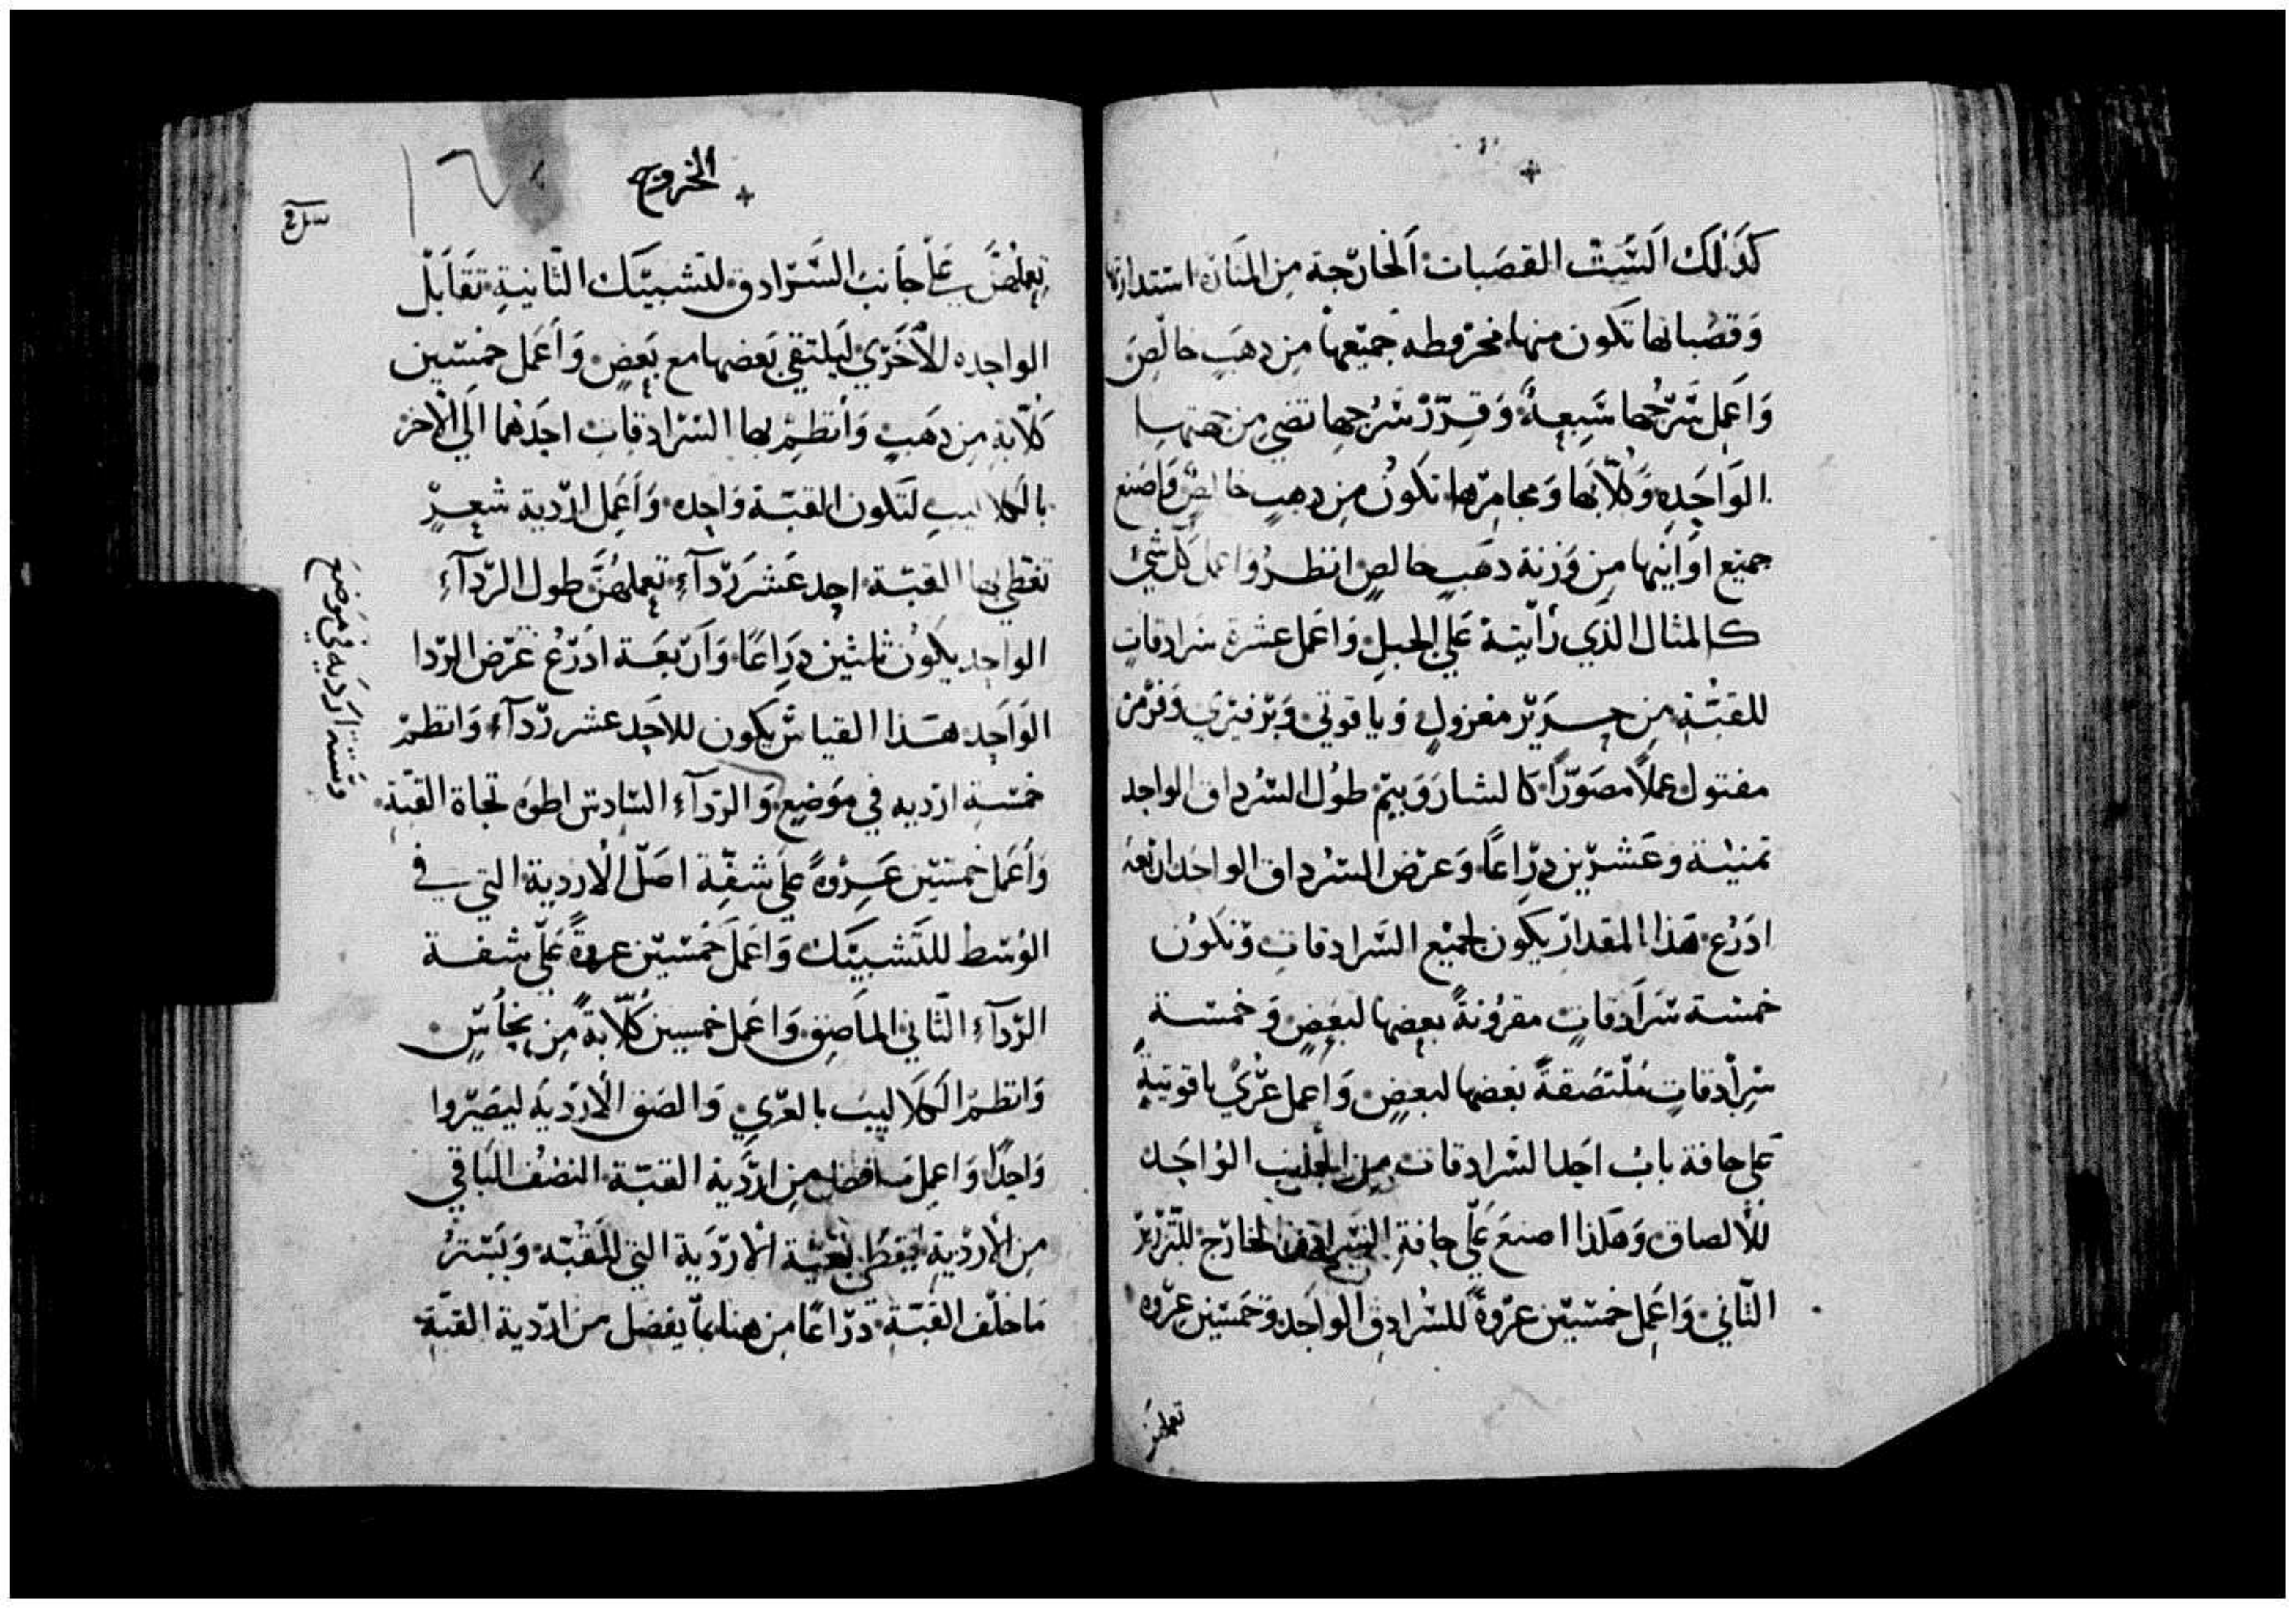 كذلك الست القصبات الخارجة من المنارة استدارتها
وقصباتها تكون منها مخروطه جميعها من دهب خالص
واعمل سرجها سبعة وقرر سرجها تضي من جهتها
الواحده وكلابها ومجامرها تكون من دهب خالص واصنع
جميع اوانيها من وزنة دهب خالص انظر واعمل كل شي
كالمثال الذي رأيتة علي الجبل واعمل عشرة سرادقات
للقبة من حرير مغزول وياقوتي وبرفيري وقرمز
مفتول عملا مصورا كالشاروبيم طول السرداق الواحد
تمنية وعشرين دراعا وعرض السرداق الواحد اربعة
ادرع هذا المقدار يكون لجميع السرادقات وتكون
خمسة سرادقات مقرونة بعضها لبعض وخمسة
سرادقات ملتصقة بعضها لبعض واعمل عري ياقوتية
علي حافة باب احد السرادقات من الجانب الواحد
للالصاق وهكذا اصنع علي حافة السرادق الخارج للتزرير
الثاني واعمل خمسين عروة للسرادق الواحد وخمسين عروه
تعملهن
الخروج
١٦
تعملهن علي جانب السرادق لتشبيك الثانية تقابل
الواحده للأخري ليلتقي بعضها مع بعض واعمل خمسين
كلابة من دهب وأنظم بها السرادقات احدهما الي الاخر
بالكلاليب لتكون القبة واحده واعمل اردية شعر
تغطي بها القبة احد عشر ردآء تعملهن طول الردآء
الواحد يكون ثلثين دراعا وأربعة ادرع عرض الردا
الواحد هذا القياس يكون للاحد عشر ردآء وانظم
خمسة ارديه في موضع والردآء السادس اطوه تجاة القبة
وستة ارديه في موضع
وأعمل خمسين عروة علي شفة اصل الاردية التي في
الوسط للتشبيك واعمل خمسين عروة علي شفة
الردآء الثاني الملاصق واعمل خمسين كلابة من نحاس
وانظم الكلاليب بالعري والصق الارديه ليصيروا
واحدا واعمل مافضل من اردية القبة النصف الباقي
من الأردية ليغطي بقية الأردية التي للقبة ويستر
ماخلف القبة دراعا من هنا بما يفضل من اردية القبة